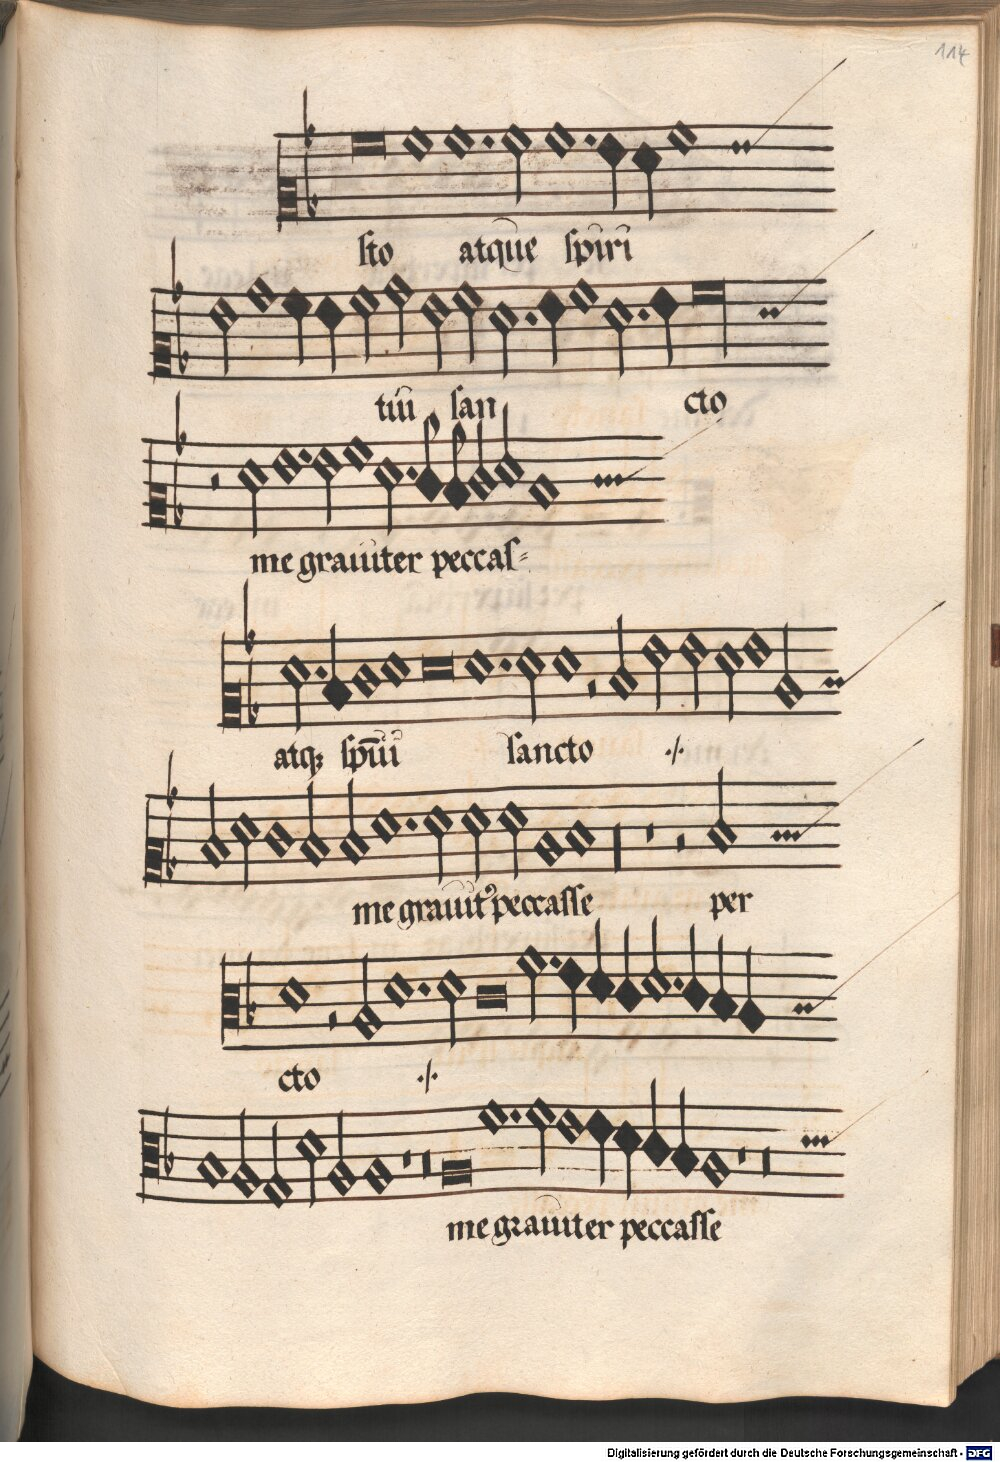 114
sto atque spiri
tui san cto
me grauiter peccas=
atqꝫ spūi sancto ·/·
me grauit᷒ peccasse per
cto ·/·
me grauiter peccasse
Digitalisierung gefördert durch die Deutsche Forschungsgemeinschaft - DFG